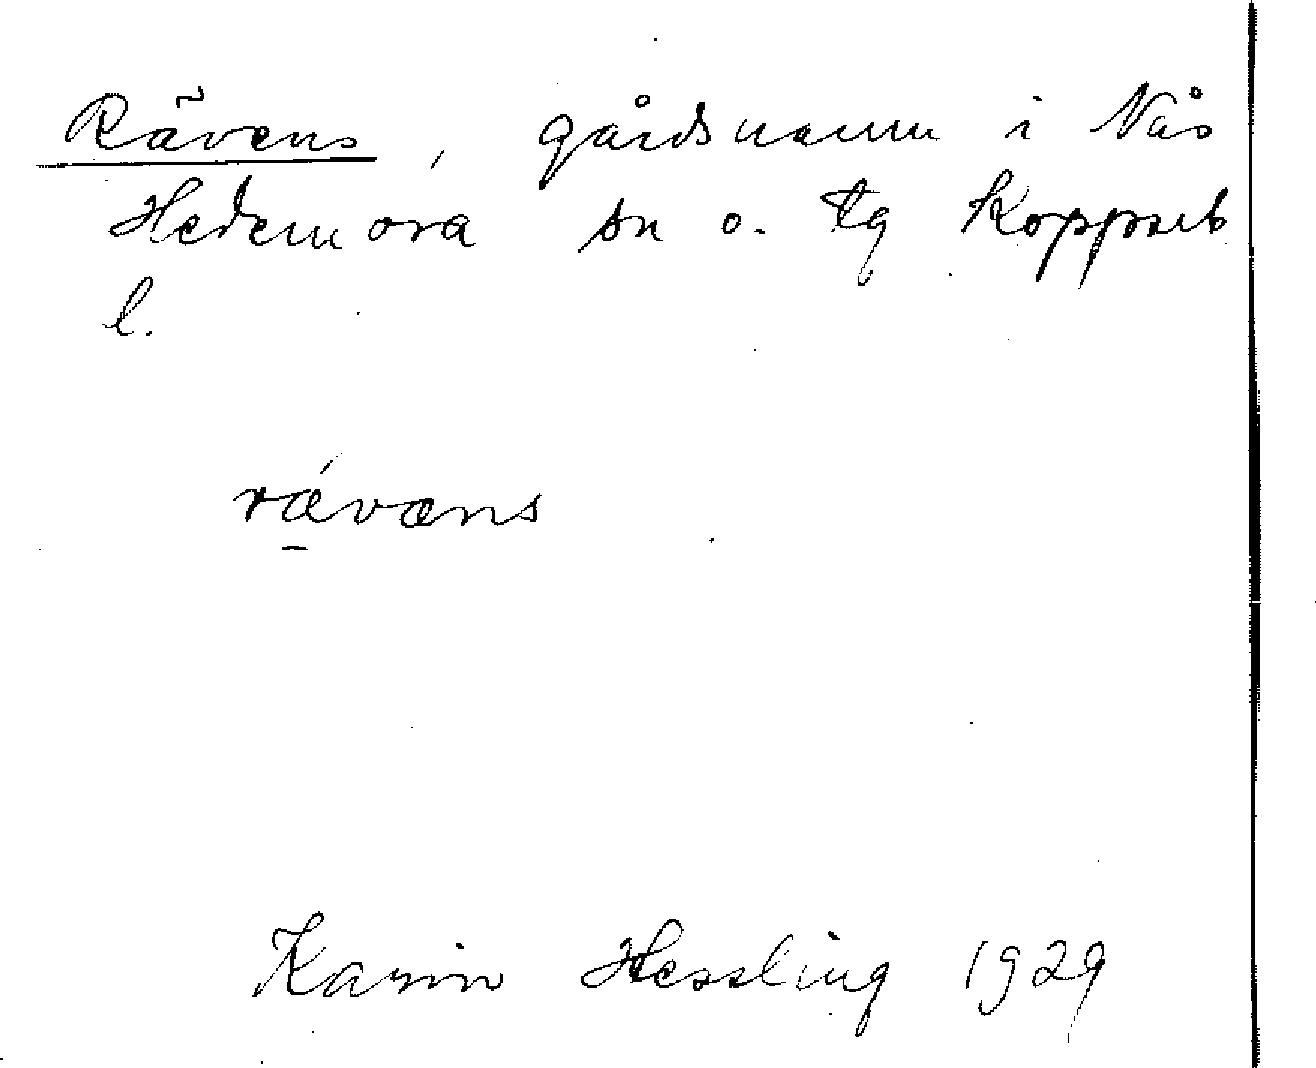 Rävens, gårdsnamn i Nås
Hedemora sn o. tg Kopparb
l.
rǽvæns
Karin Hessling 1929